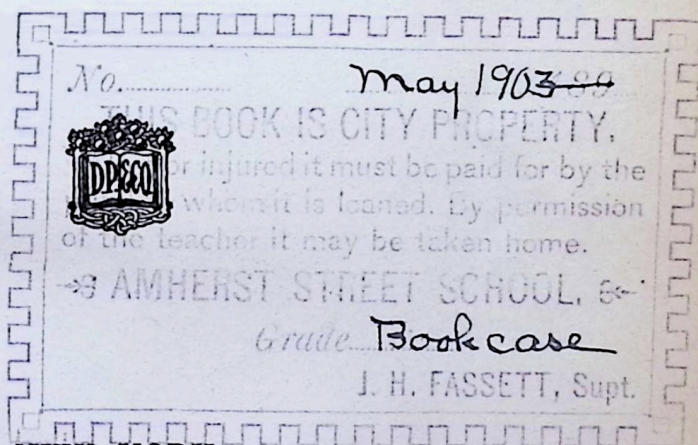 No. May 1903 189
THIS BOOK IS CITY PROPERTY.
or injured it must be paid for by the
whom it is loaned. By permission
of the teacher it may be taken home.
AMHERST STREET SCHOOL,
Grade Bookcase
J. H. FASSETT, Supt.
D.P.&CO.